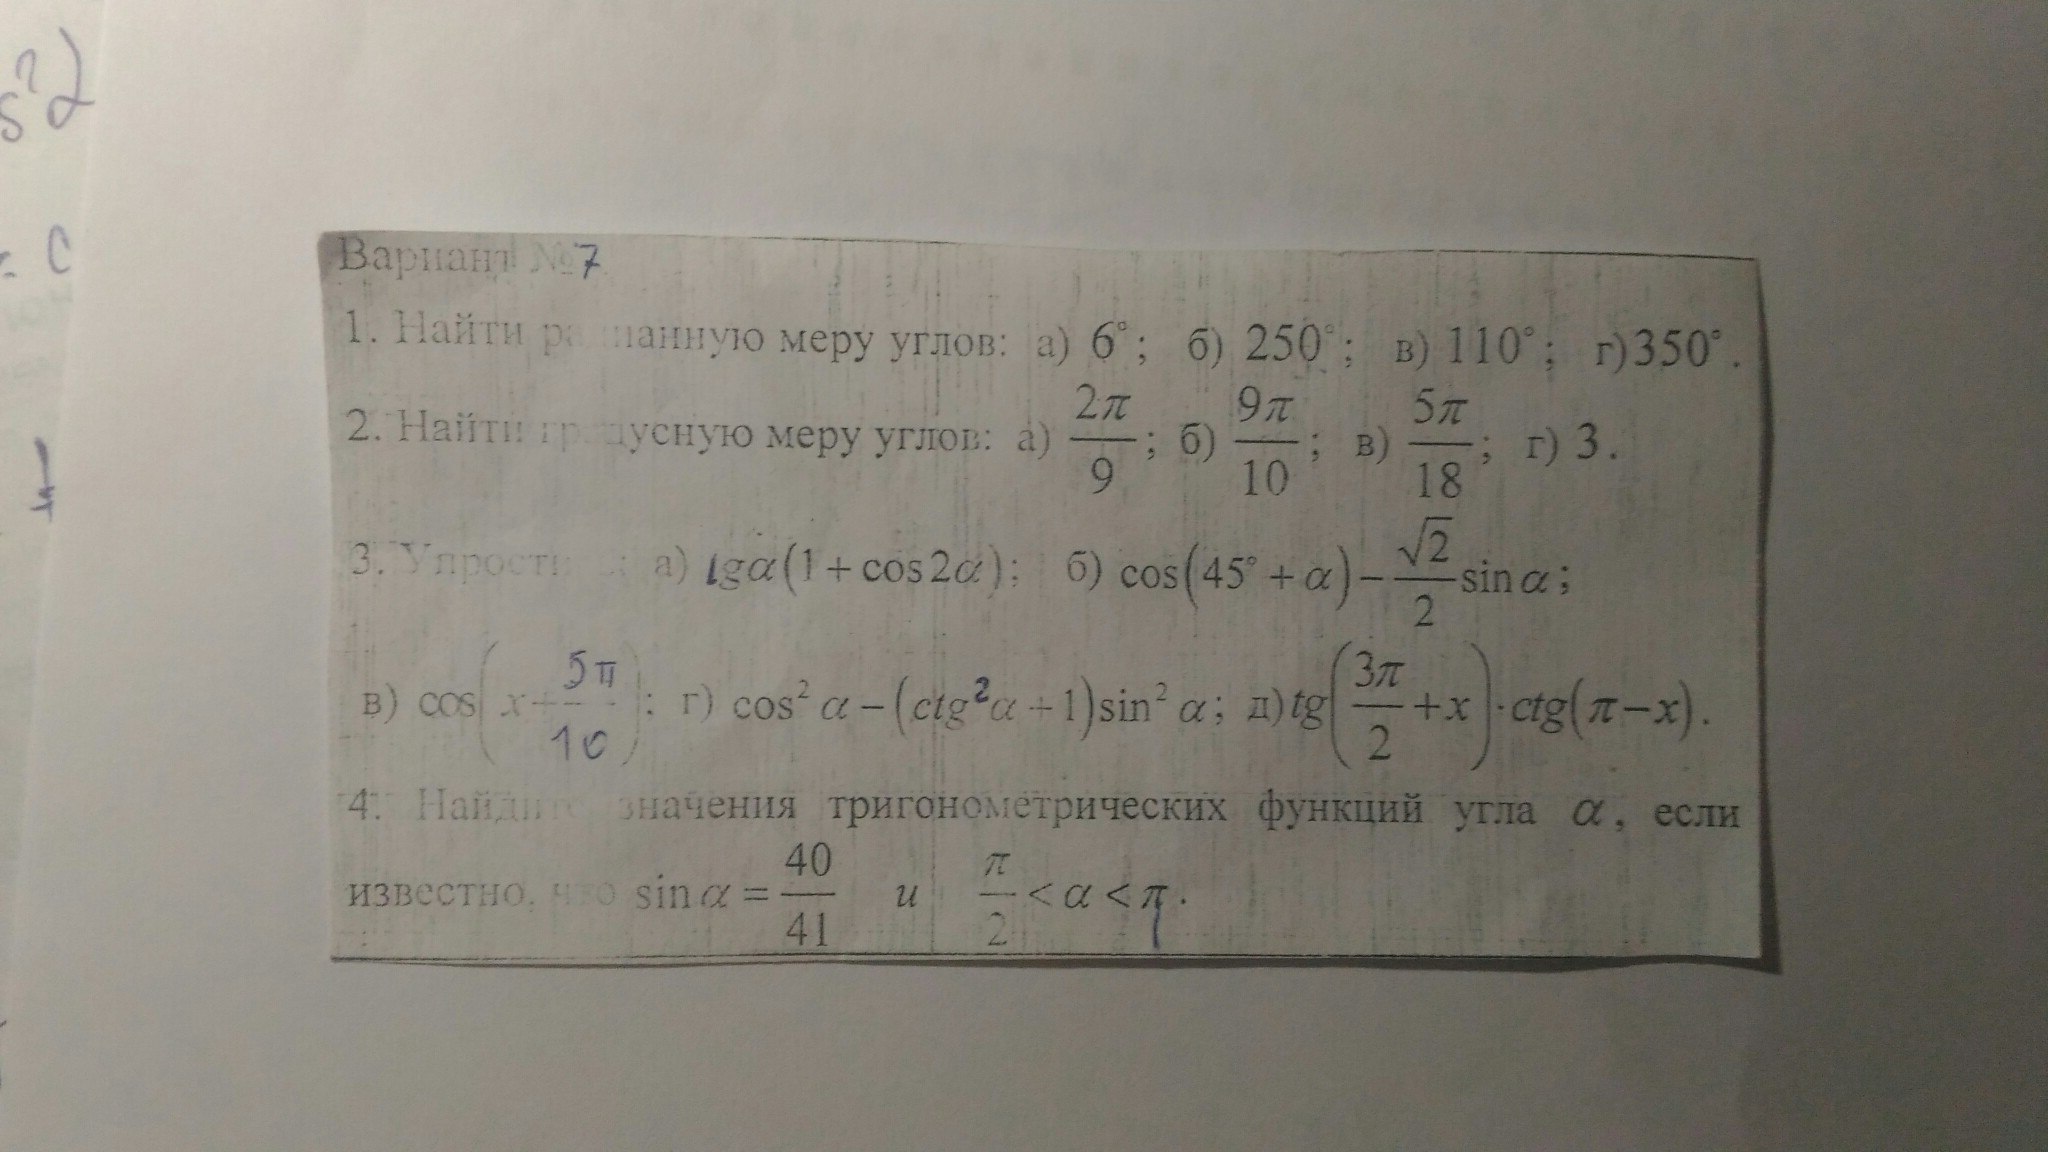 s²α
. С
Вариант №7
1. Найти радианную меру углов: а) 6°; б) 250°; в) 110°; г) 350°.
2. Найти градусную меру углов: а) 2π/9; б) 9π/10; в) 5π/18; г) 3.
3. Упростить: а) tgα(1+cos2α); б) cos(45°+α)−√2/2 sinα;
в) cos(x+5π/10); г) cos²α−(ctg²α+1)sin²α; д) tg(3π/2+x)·ctg(π−x).
4. Найдите значения тригонометрических функций угла α, если
известно, что sinα=40/41 и π/2<α<π.